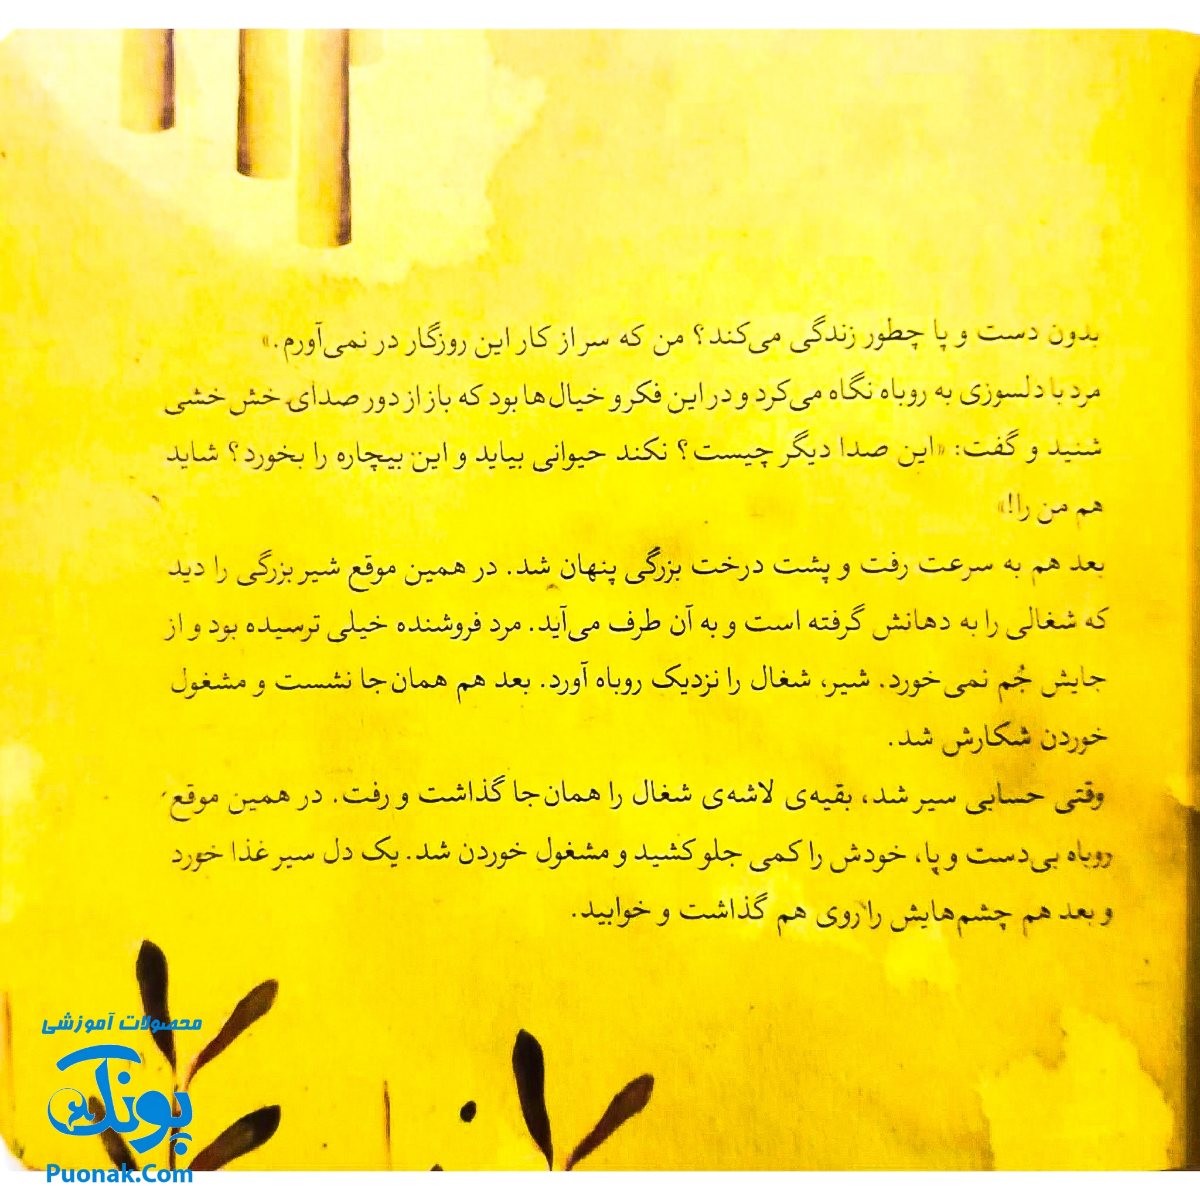 بدون دست و پا چطور زندگی می‌کند؟ من که سر از کار این روزگار در نمی‌آورم.»
مرد با دلسوزی به روباه نگاه می‌کرد و در این فکر و خیال‌ها بود که باز از دور صدای خش خشی
شنید و گفت: «این صدا دیگر چیست؟ نکند حیوانی بیاید و این بیچاره را بخورد؟ شاید
هم من را!»
بعد هم به سرعت رفت و پشت درخت بزرگی پنهان شد. در همین موقع شیر بزرگی را دید
که شغالی را به دهانش گرفته است و به آن طرف می‌آید. مرد فروشنده خیلی ترسیده بود و از
جایش جُم نمی‌خورد. شیر، شغال را نزدیک روباه آورد. بعد هم همان‌جا نشست و مشغول
خوردن شکارش شد.
وقتی حسابی سیر شد، بقیه‌ی لاشه‌ی شغال را همان‌جا گذاشت و رفت. در همین موقع
روباه بی‌دست و پا، خودش را کمی جلو کشید و مشغول خوردن شد. یک دل سیر غذا خورد
و بعد هم چشم‌هایش را روی هم گذاشت و خوابید.
محصولات آموزشی
پونک
Puonak.Com